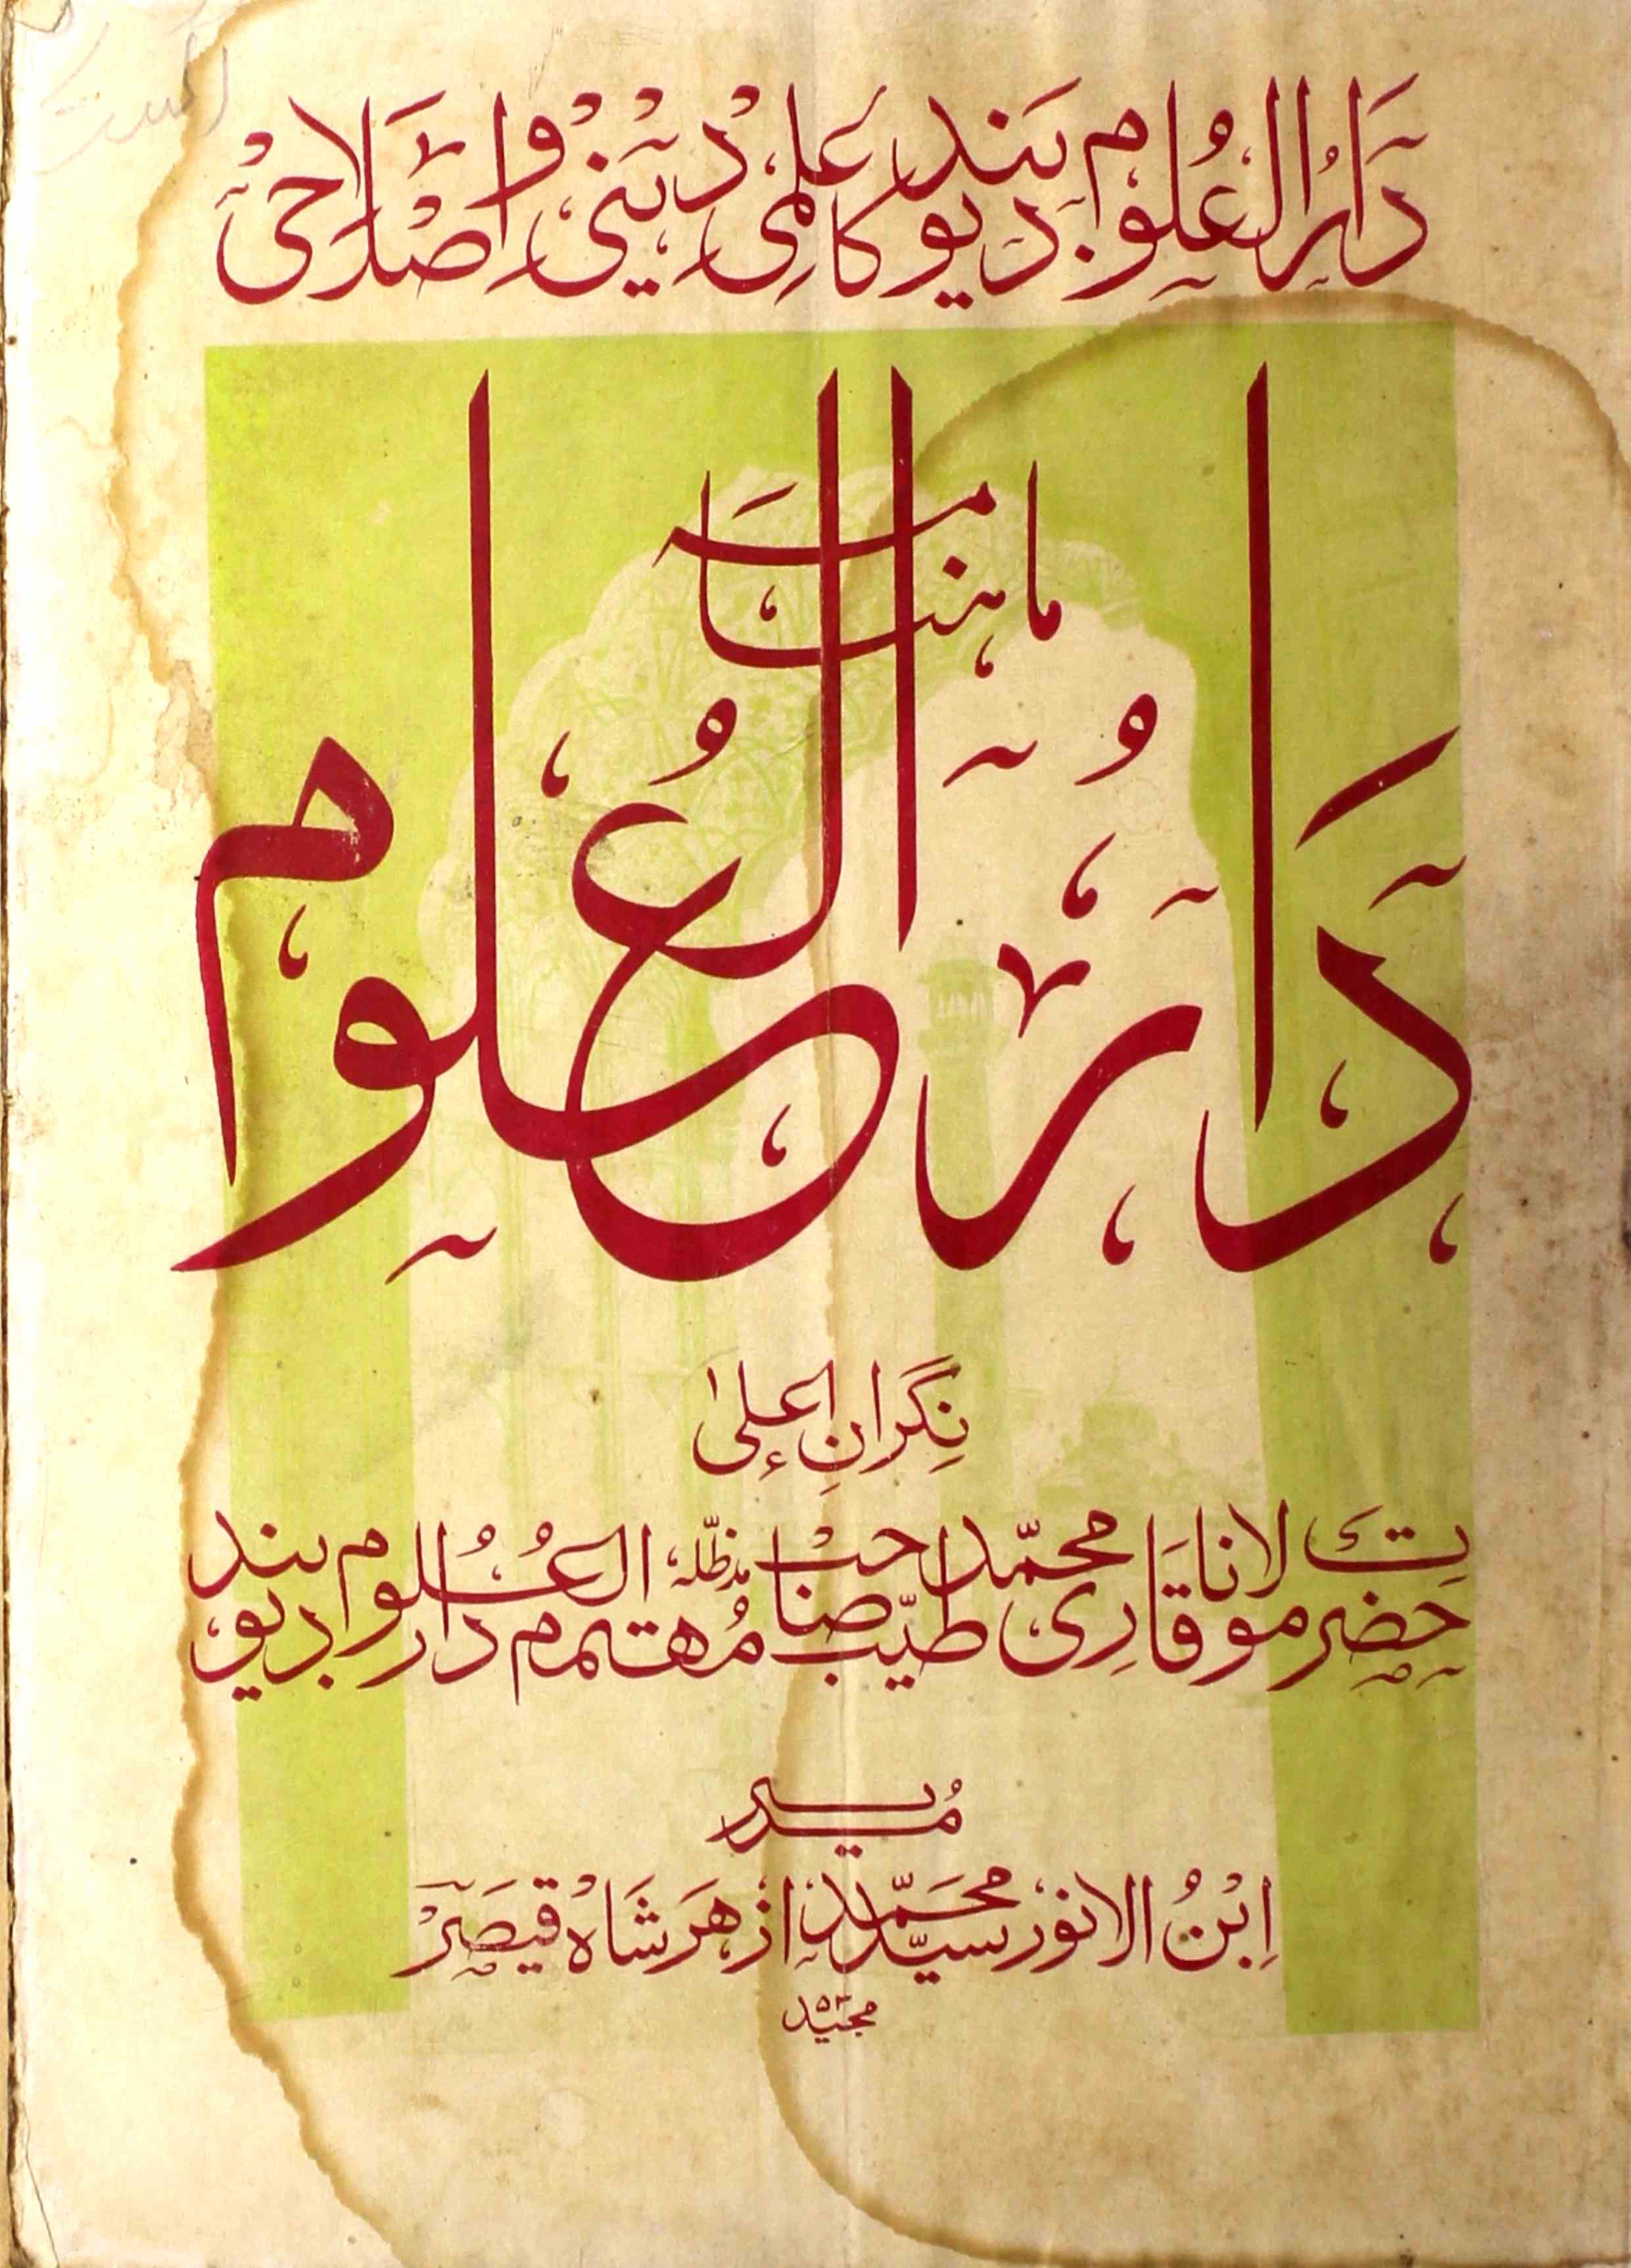 دَارُالعُلوم دیوبَند کا عِلمی دینی و اصلاحی
ماہنامہ
دَارُالعُلوم
نِگرانِ اعلیٰ
حضرت مولانا قاری محمّد طیّب صاحب مدظلّہٗ مُہتمم دارالعُلوم دیوبند
مُدیر
اِبْنُ الانور سیّد محمّد ازهر شاہ قیصَر
مجید ۵۳